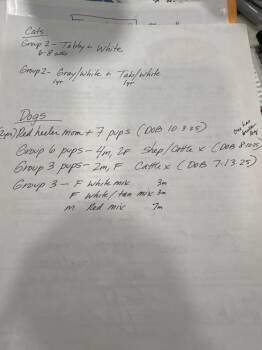 Cats
Group 2 - Tabby & White
6-8 wks
Group 2 - Gray/White & Tab/White
1yr 1yr
Dogs
Red heeler mom + 7 pups (DOB 10.3.25)
Group 6 pups - 4m, 2F Shep/Cattle x (DOB 8.10.25)
Group 3 pups - 2m, F Cattle x (DOB 7.13.25)
Group 3 - F White mix 3m
F White/tan mix 3m
M Red mix 7m